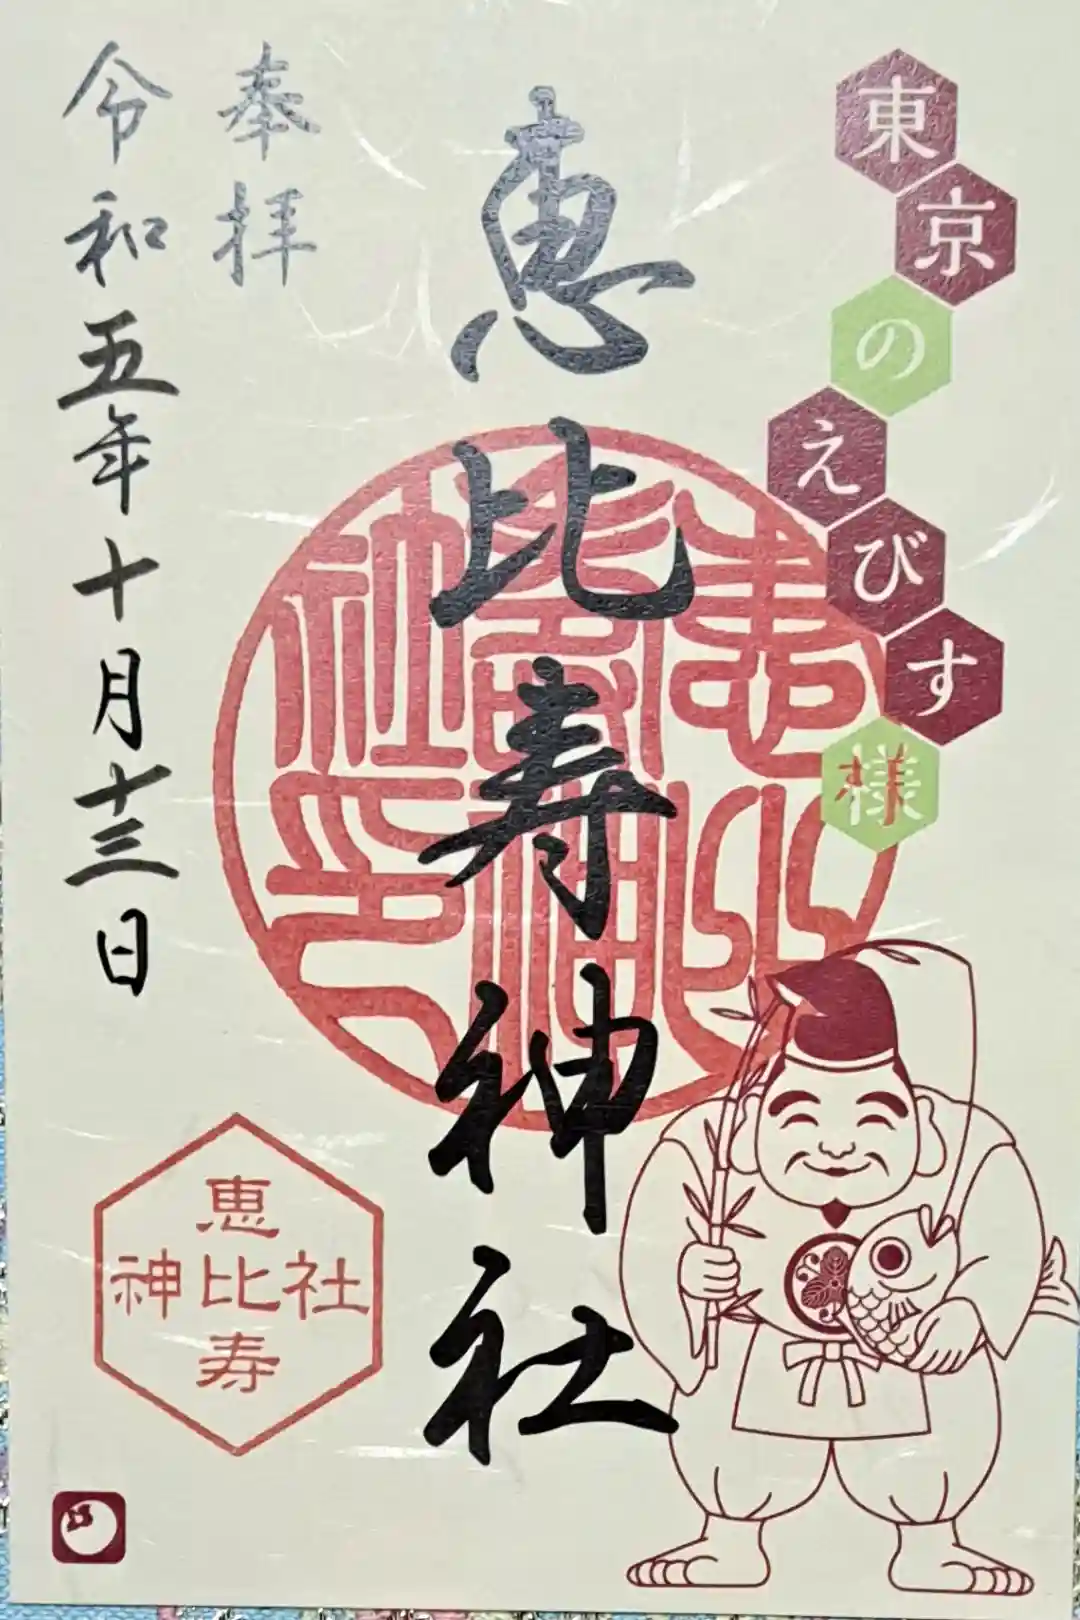 東京のえびす様
恵比寿神社
奉拝
令和五年十月十三日
恵比寿神社印
恵
神比社
寿